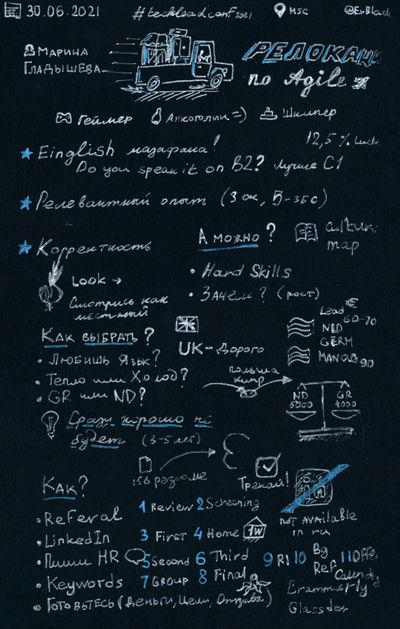 30.06.2021 #techleadconf2021 MSC @EvBlack
Марина
Гладышева
РЕЛОКАЦИЯ
по Agile
Геймер Алкоголик =) Шкипер
12,5% Luck
Einglish мазафака!
Do you speak it on B2? Лучше C1
Релевантный опыт (3 ок, 5-
Корректность
А можно?
map
Look →
Смотрись как
местный
• Hard Skills
• Зачем? (рост)
Как выбрать?
• Любишь Язык?
• Тепло или Холод?
• GR или ND?
UK - Дорого
Lead €
60-70
NLD
GERM
90
польша
кипр
ND
5000
GR
4000
Сразу хорошо не
будет (3-5 лет)
156 резюме
Трекай!
not available
in ru
Как?
• Referal
• LinkedIn
• Пиши HR
• Keywords
• Готовьтесь (Деньги, Цели,
1 Review 2 Screening
3 First 4 Home 1w
5 Second 6 Third
7 Group 8 Final
9 R1 10 By Ref. 11 Offer
Calendly
Grammarly
Glassdor